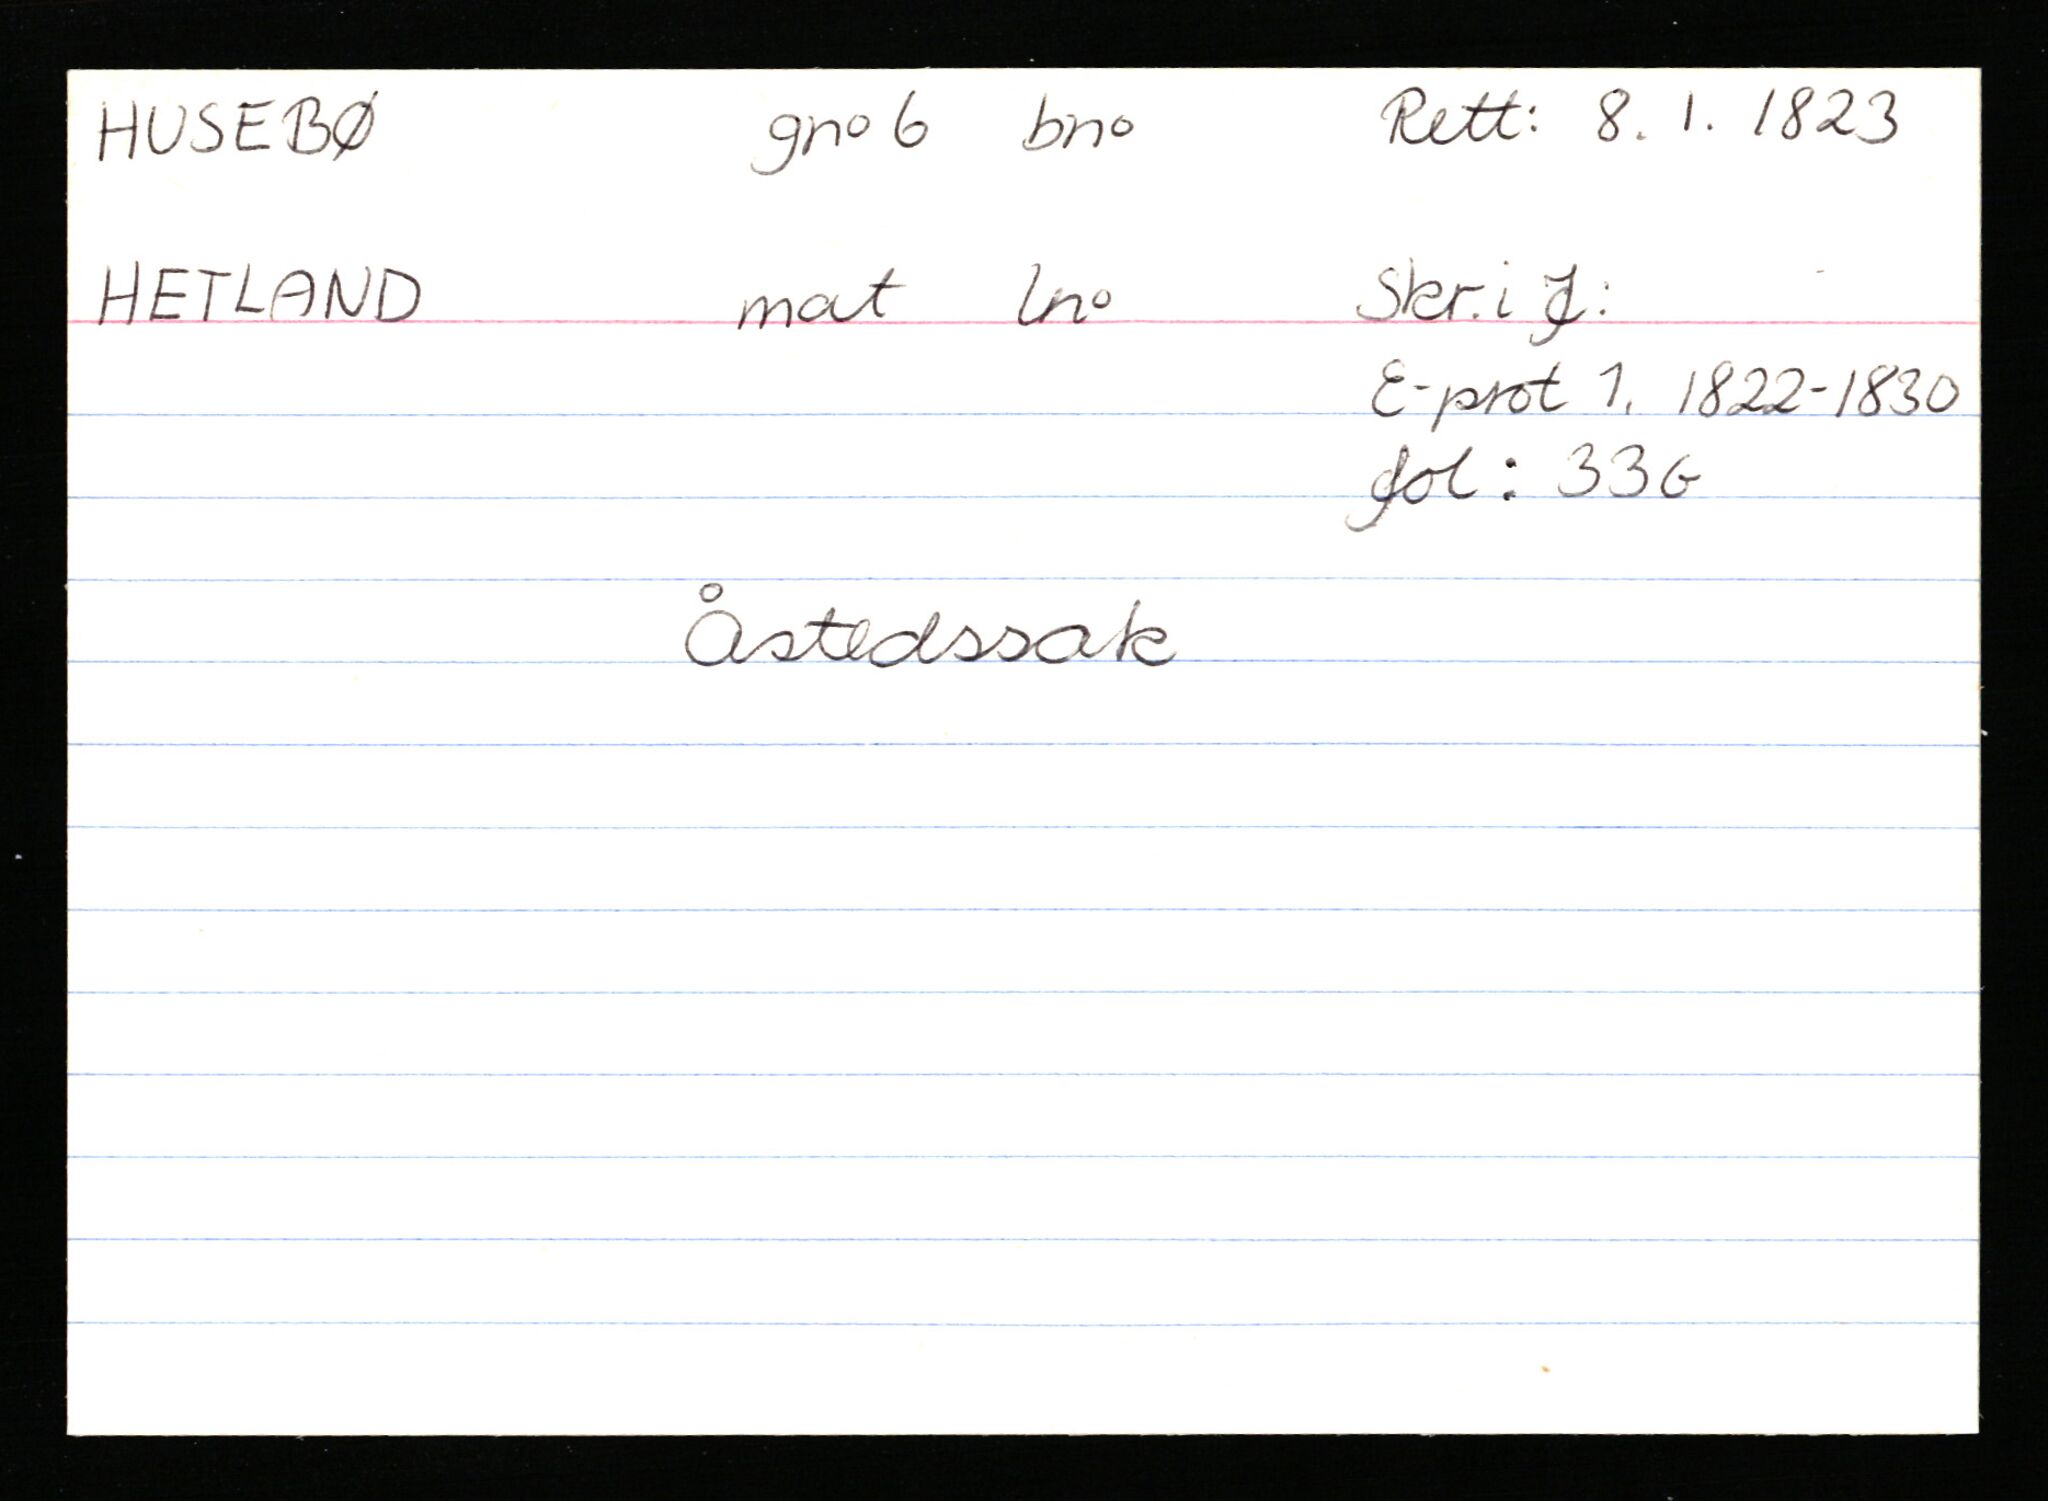 HUSEBØ gno 6 bno Rett: 8. 1. 1823
HETLAND mat lno Skr. i J:
E-prot 1. 1822-1830
fol: 336
Åstedssak